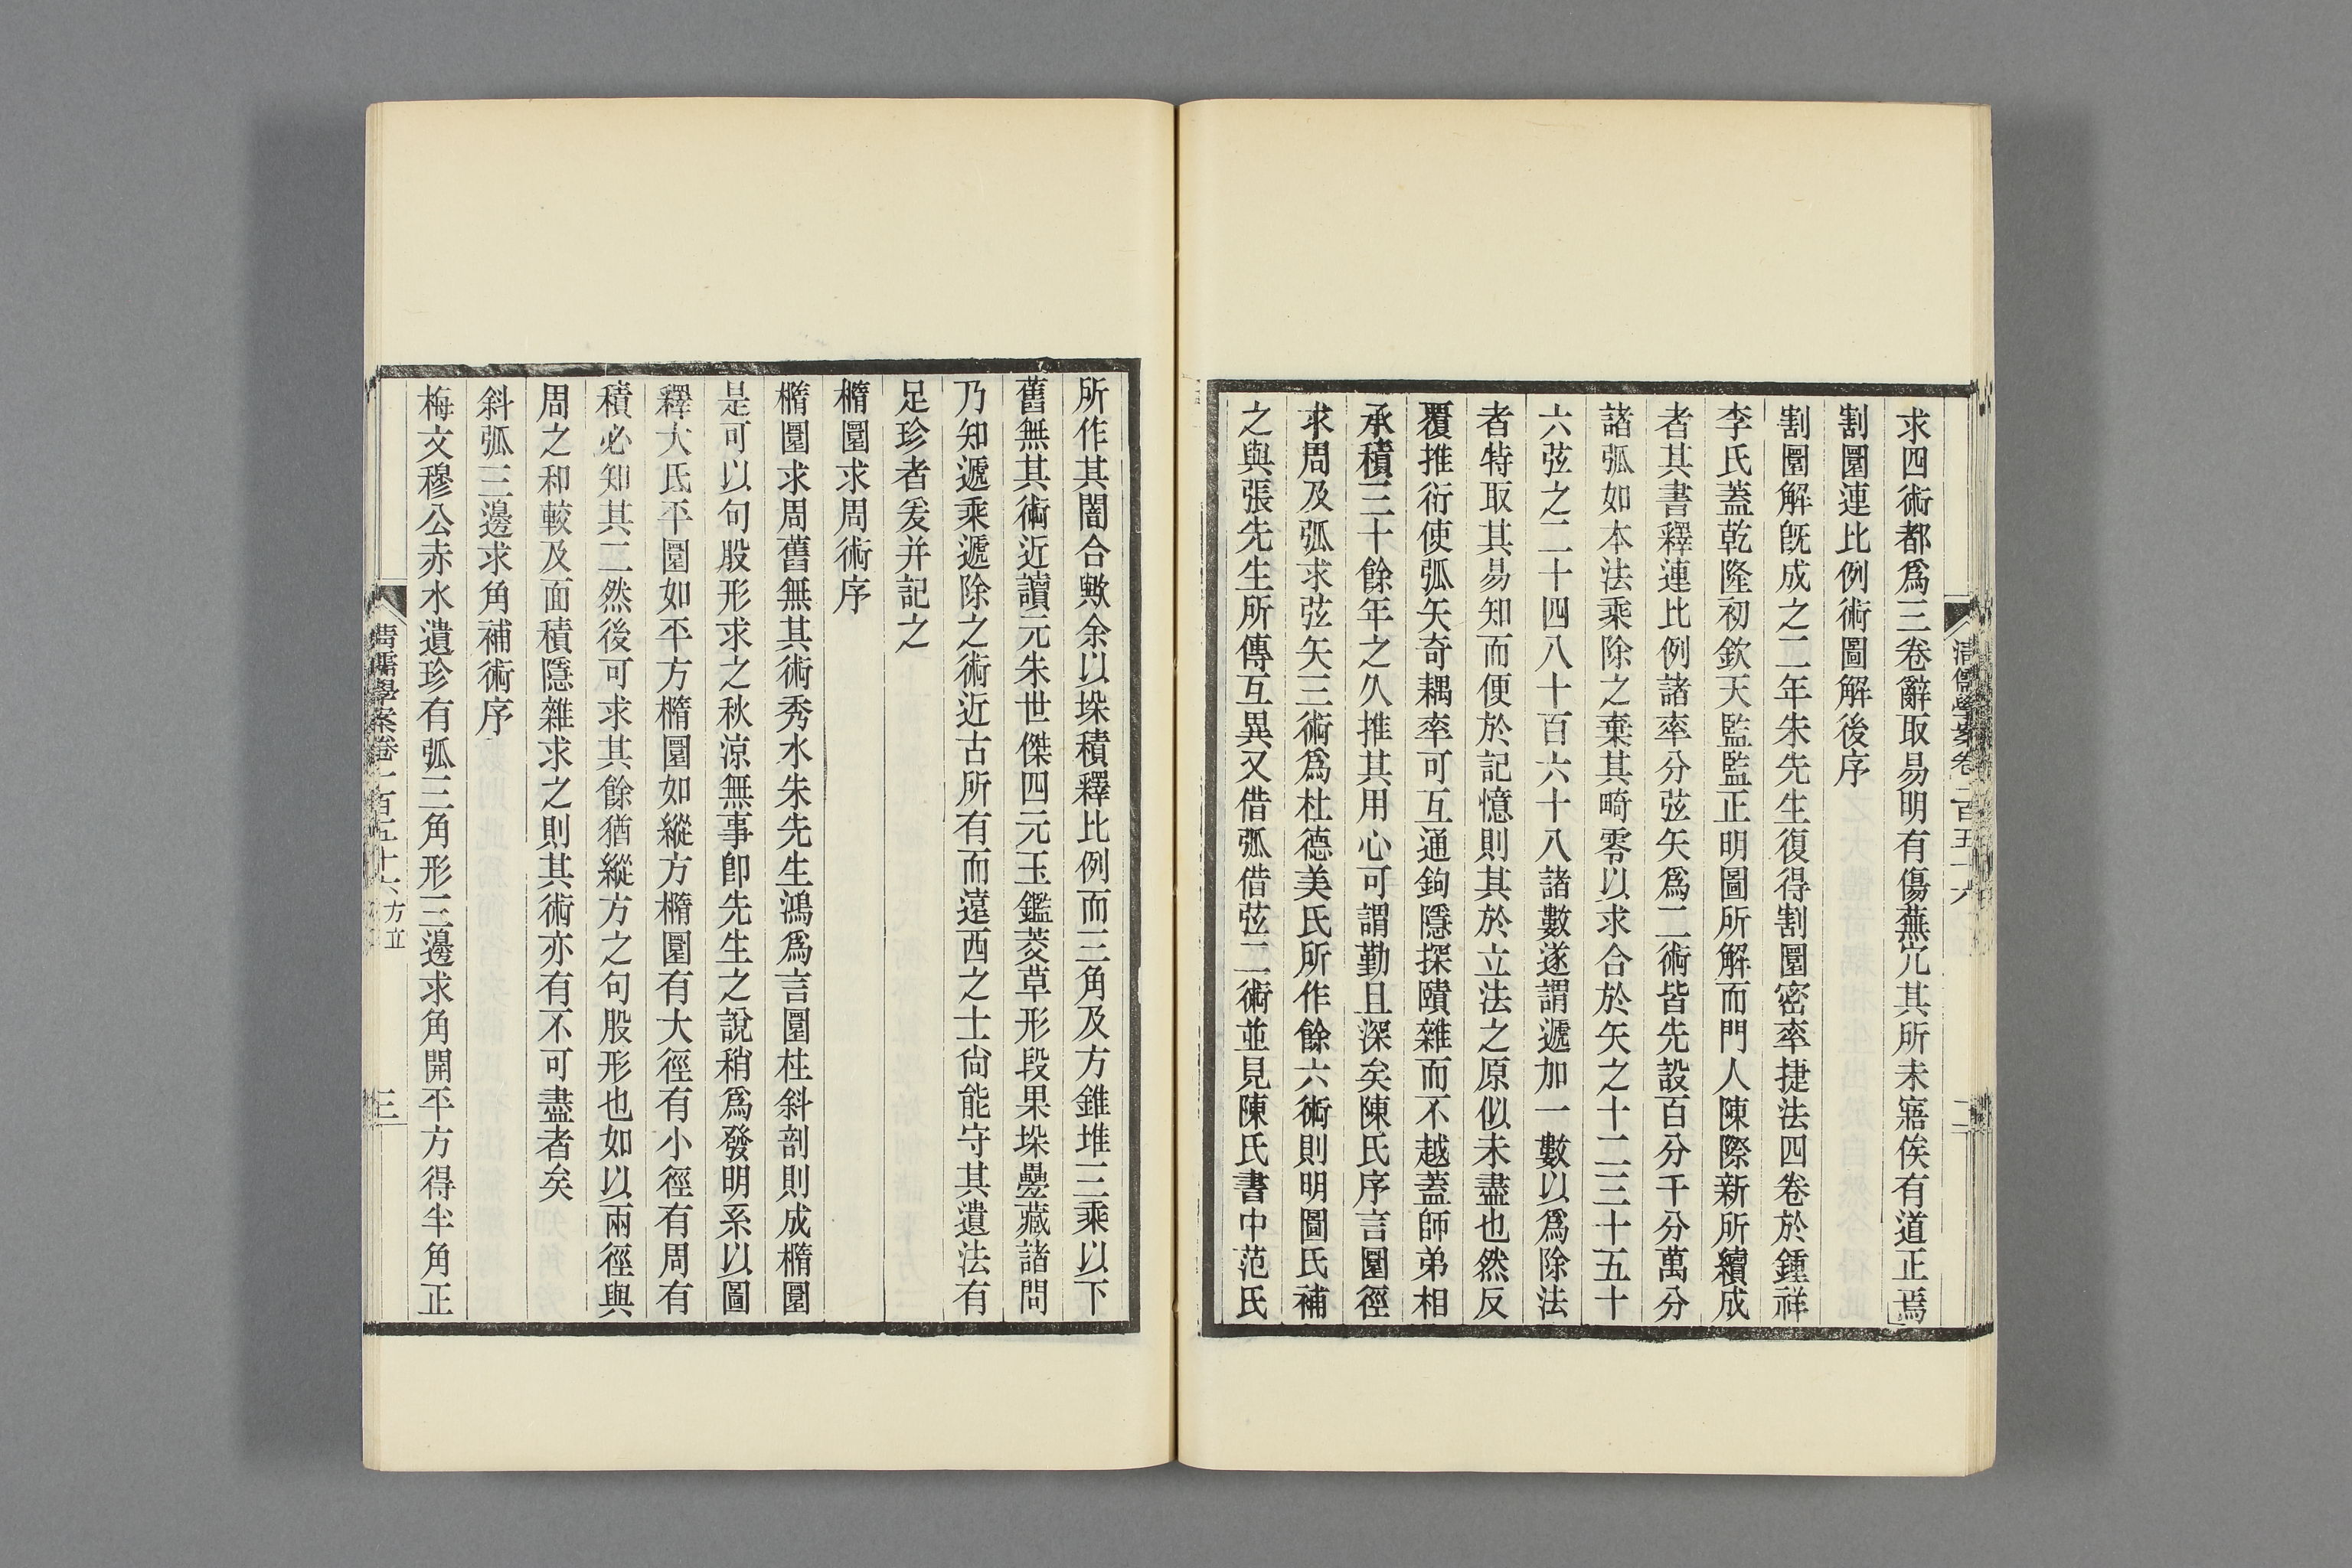 求四術都爲三卷辭取易明有傷蕪宂其所未寤俟有道正焉
割圜連比例術圖解後序
割圜解旣成之二年朱先生復得割圜密率捷法四卷於鍾祥
李氏蓋乾隆初欽天監監正明圖所解而門人陳際新所續成
者其書釋連比例諸率分弦矢爲二術皆先設百分千分萬分
諸弧如本法乘除之棄其畸零以求合於矢之十二三十五十
六弦之二十四八十百六十八諸數遂謂遞加一數以爲除法
者特取其易知而便於記憶則其於立法之原似未盡也然反
覆推衍使弧矢奇耦率可互通鉤隱探賾雜而不越蓋師弟相
承積三十餘年之久推其用心可謂勤且深矣陳氏序言圜徑
求周及弧求弦矢三術爲杜德美氏所作餘六術則明圖氏補
之與張先生所傳互異又借弧借弦二術並見陳氏書中范氏
清儒學案卷二百五十六
二
所作其闇合歟余以垜積釋比例而三角及方錐堆三乘以下
舊無其術近讀元朱世傑四元玉鑑茭草形段果垜疊藏諸問
乃知遞乘遞除之術近古所有而遠西之士尙能守其遺法有
足珍者爰并記之
橢圜求周術序
橢圜求周舊無其術秀水朱先生鴻爲言圜柱斜剖則成橢圜
是可以句股形求之秋涼無事卽先生之說稍爲發明系以圖
釋大氐平圜如平方橢圜如縱方橢圜有大徑有小徑有周有
積必知其二然後可求其餘猶縱方之句股形也如以兩徑與
周之和較及面積隱雜求之則其術亦有不可盡者矣
斜弧三邊求角補術序
梅文穆公赤水遺珍有弧三角形三邊求角開平方得半角正
清儒學案卷二百五十六 方立
三